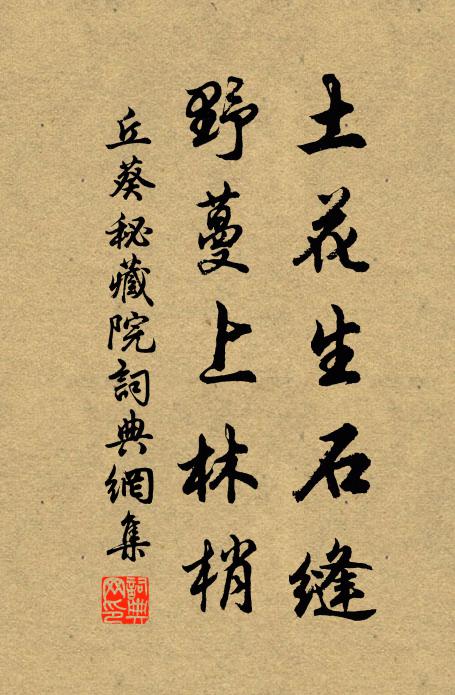 土花生石縫
野蔓上林梢
丘葵秘藏院詞典網集
詞典网印